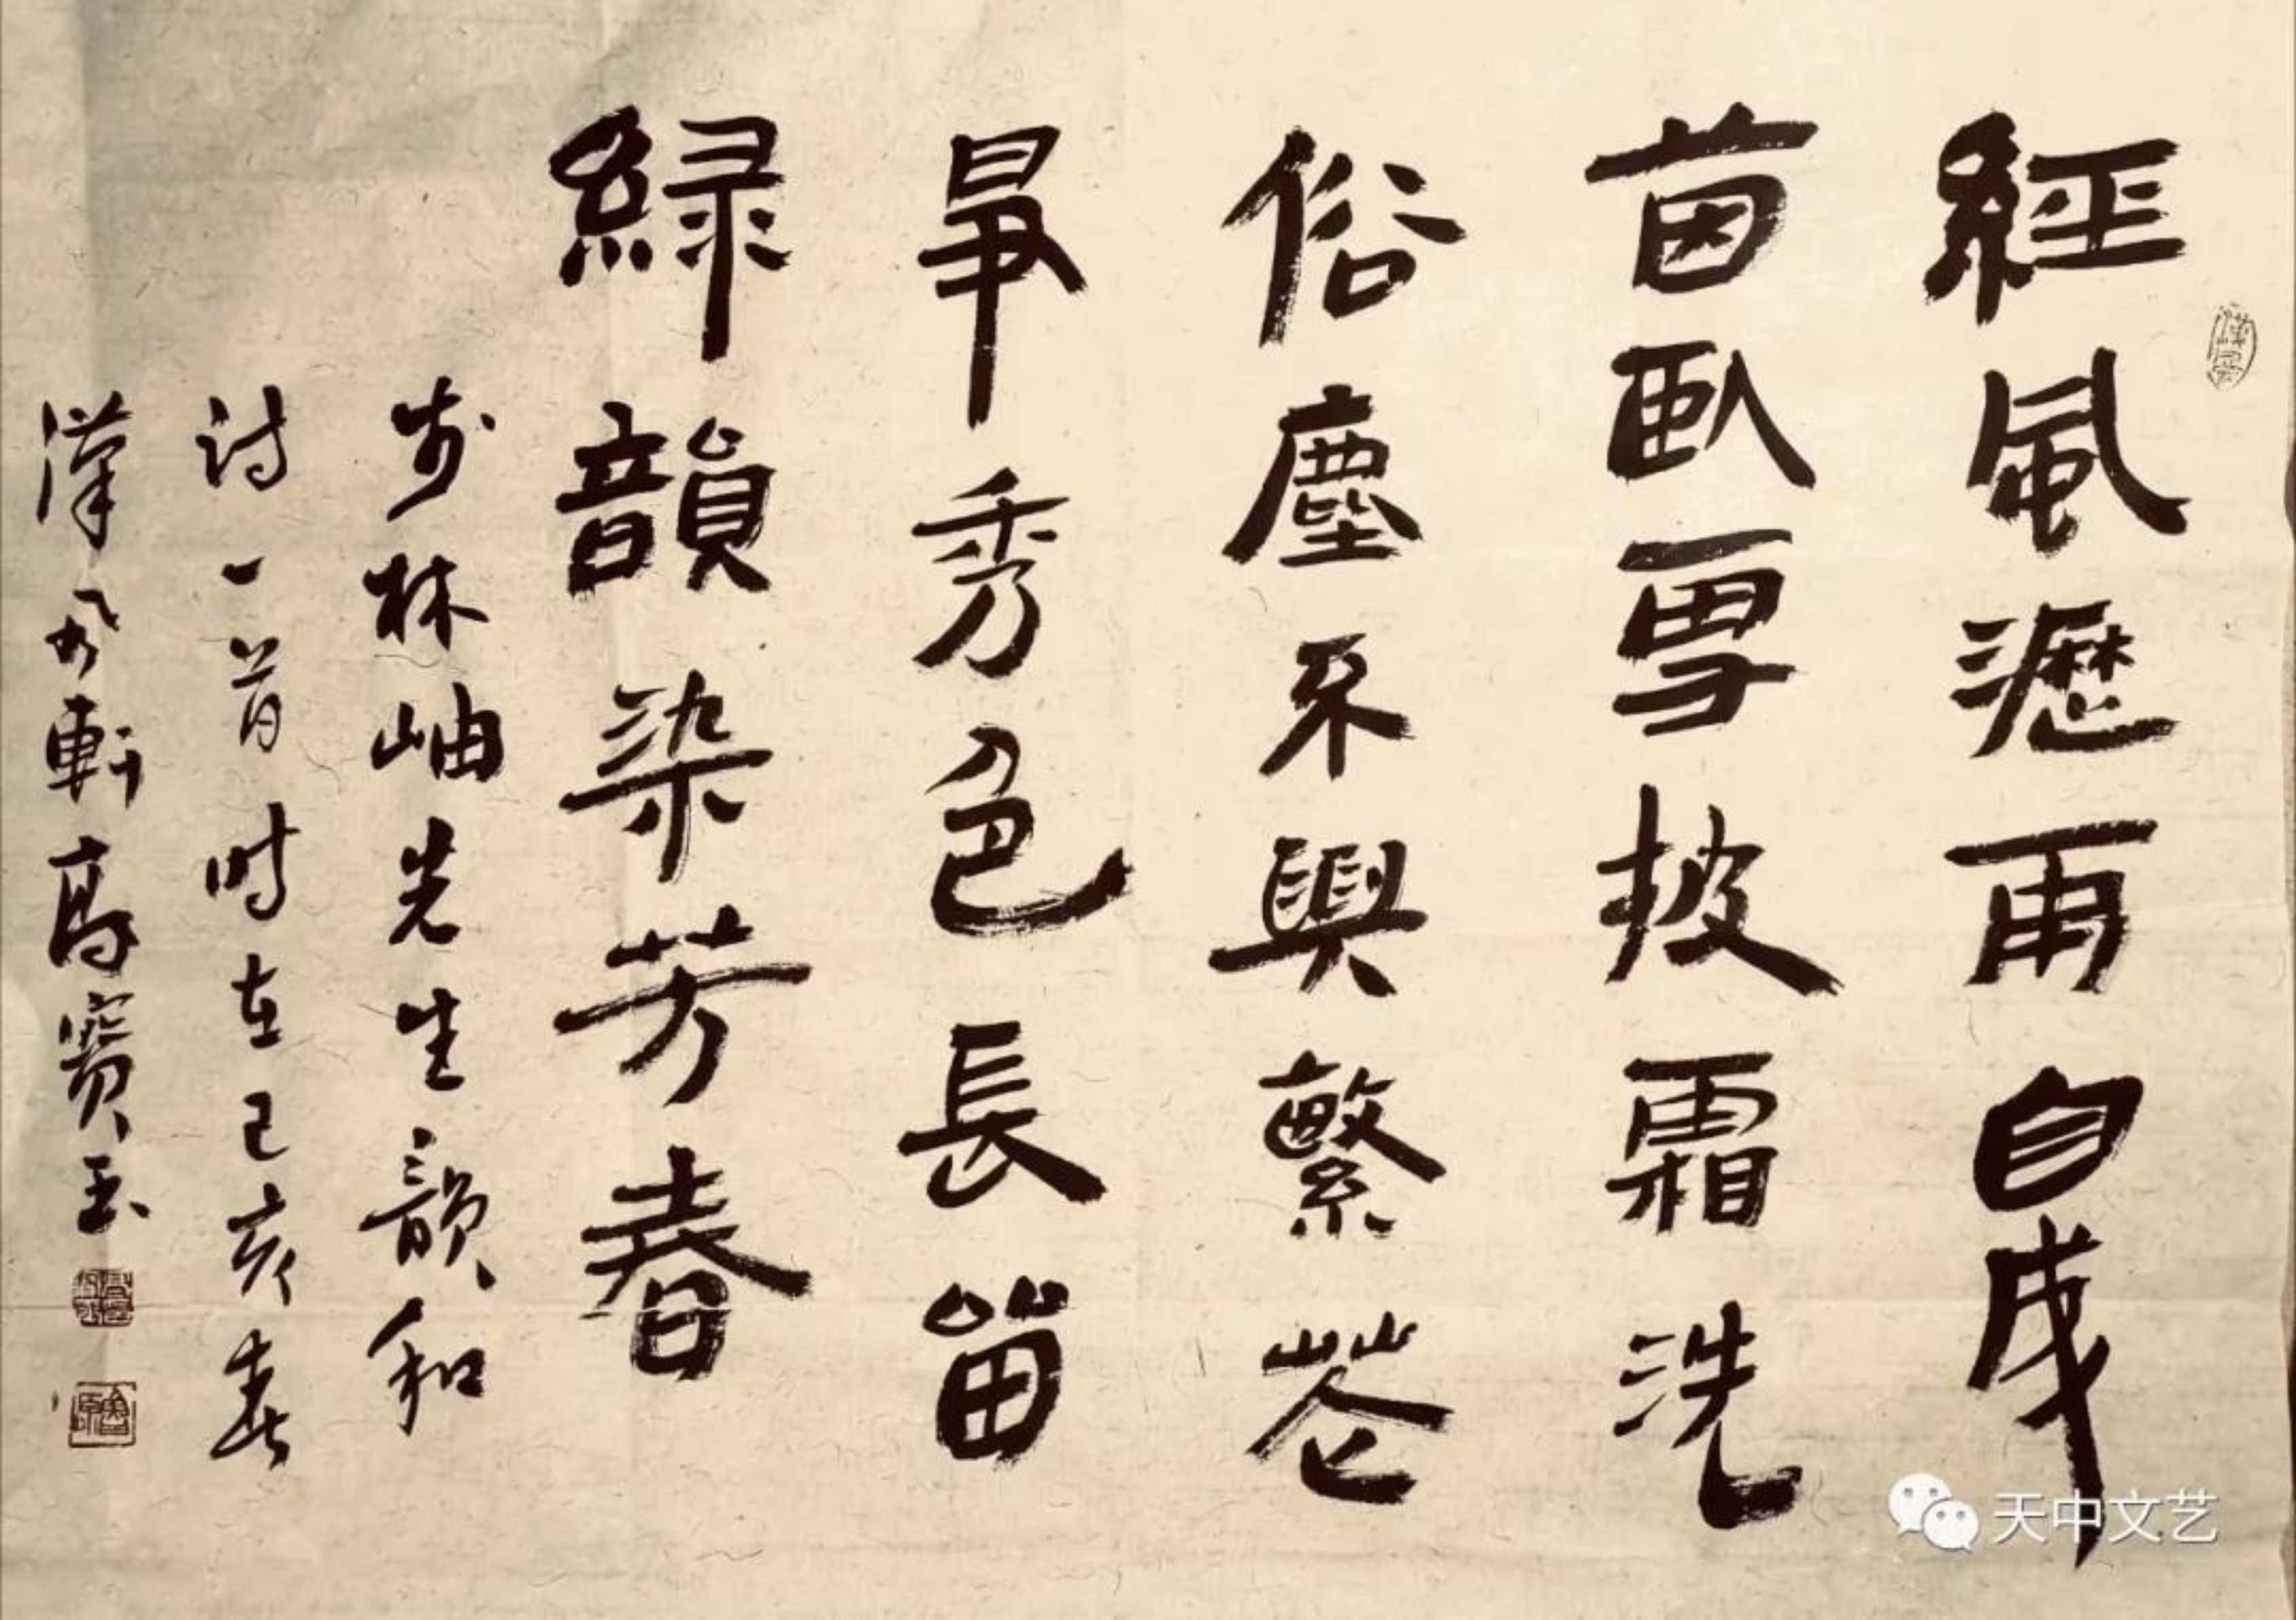 經風瀝雨自成
茵臥雪披霜洗
俗塵不與繁花
爭秀色長留
綠韻染芳春
步林岫先生韻和
詩一首時在己亥春
漢風軒高寶玉
天中文艺